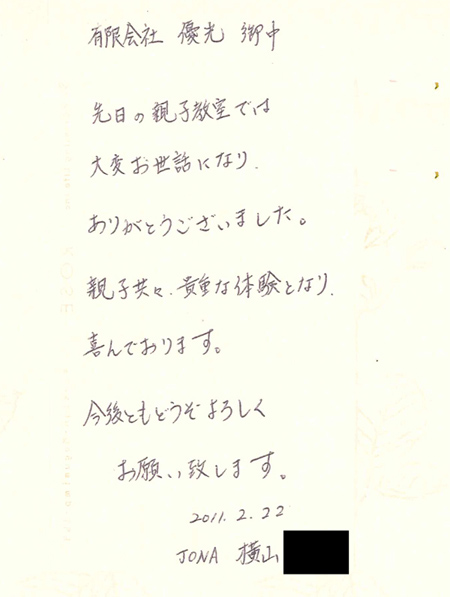 有限会社 優光 御中
先日の親子教室では
大変お世話になり、
ありがとうございました。
親子共々、貴重な体験となり、
喜んでおります。
今後ともどうぞよろしく
お願い致します。
2011.2.22
JONA 横山